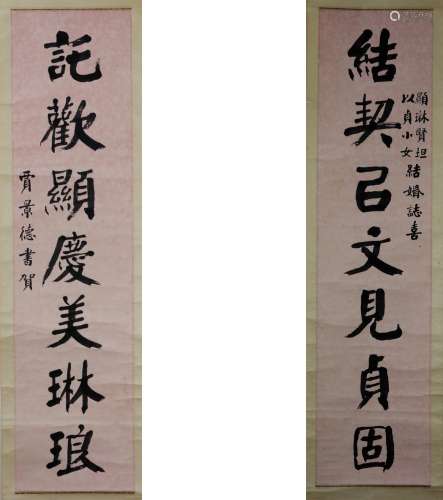 顯琳賢坦
以貞小女結婚誌喜
結契㠯文見貞固
託歡顯慶美琳琅
賈景德書賀